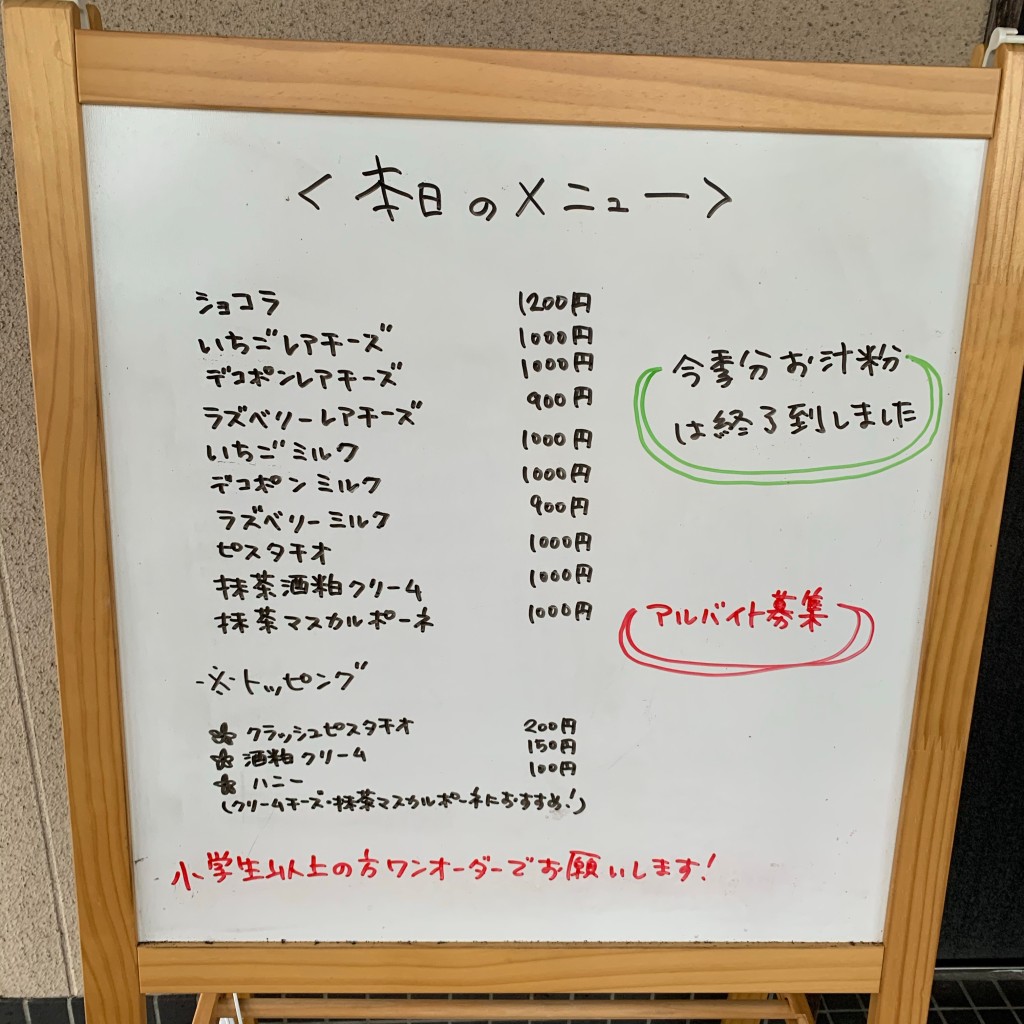 <本日のメニュー>
ショコラ 1200円
いちごレアチーズ 1000円
デコポンレアチーズ 1000円
ラズベリーレアチーズ 900円
いちごミルク 1000円
デコポンミルク 1000円
ラズベリーミルク 900円
ピスタチオ 1000円
抹茶酒粕クリーム 1000円
抹茶マスカルポーネ 1000円
※トッピング
クラッシュピスタチオ 200円
酒粕クリーム 150円
ハニー 100円
(クリームチーズ・抹茶マスカルポーネにおすすめ!)
小学生以上の方ワンオーダーでお願いします!
今季分お汁粉
は終了到しました
アルバイト募集